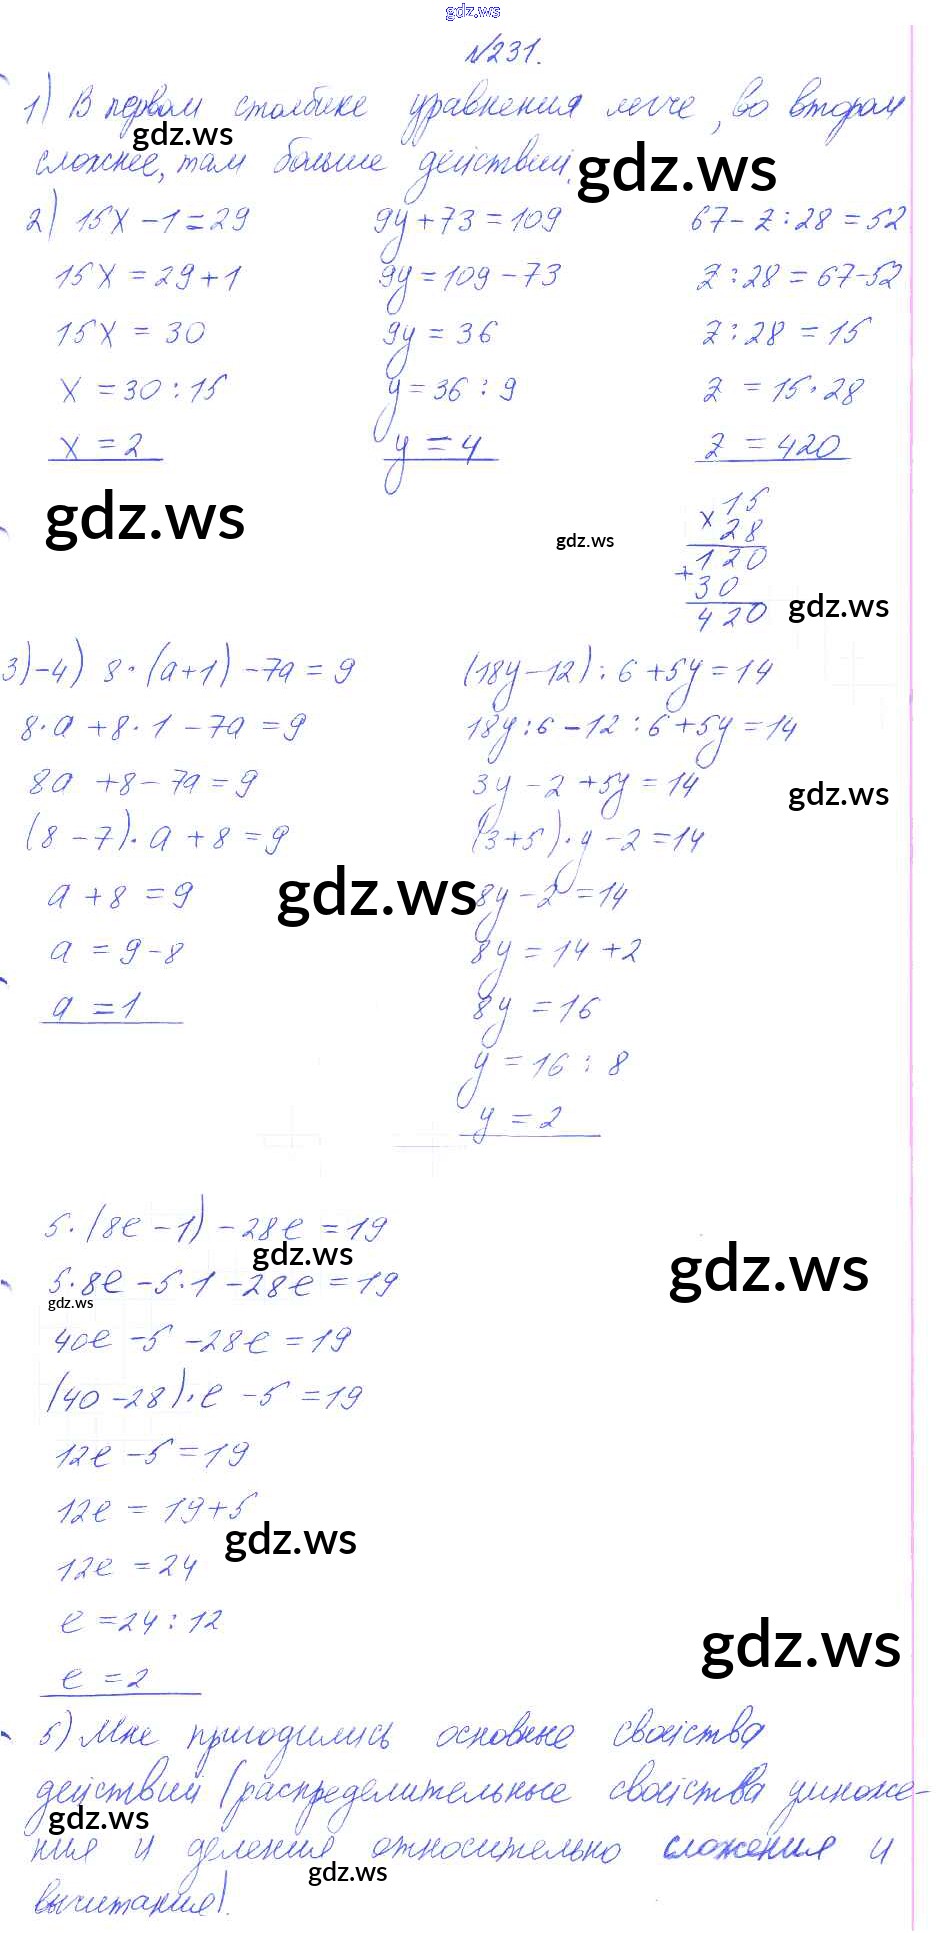 gdz.ws
№231.
1) В первом столбике уравнения легче, во втором
gdz.ws
сложнее, там больше действий.
gdz.ws
2) 15x - 1 = 29
15x = 29 + 1
15x = 30
x = 30 : 15
x = 2
9y + 73 = 109
9y = 109 - 73
9y = 36
y = 36 : 9
y = 4
67 - z : 28 = 52
z : 28 = 67 - 52
z : 28 = 15
z = 15 · 28
z = 420
gdz.ws
gdz.ws
x 15
28
120
+ 30
420
gdz.ws
3)-4) 8 · (a + 1) - 7a = 9
8 · a + 8 · 1 - 7a = 9
8a + 8 - 7a = 9
(8 - 7) · a + 8 = 9
a + 8 = 9
a = 9 - 8
a = 1
(18y - 12) : 6 + 5y = 14
18y : 6 - 12 : 6 + 5y = 14
3y - 2 + 5y = 14
(3 + 5) · y - 2 = 14
8y - 2 = 14
8y = 14 + 2
8y = 16
y = 16 : 8
y = 2
gdz.ws
gdz.ws
5 · (8e - 1) - 28e = 19
gdz.ws
5 · 8e - 5 · 1 - 28e = 19
gdz.ws
gdz.ws
40e - 5 - 28e = 19
(40 - 28) · e - 5 = 19
12e - 5 = 19
12e = 19 + 5
gdz.ws
12e = 24
e = 24 : 12
gdz.ws
e = 2
5) Мне пригодились основные свойства
действий (распределительные свойства умноже-
gdz.ws
ния и деления относительно сложения и
gdz.ws
вычитания).